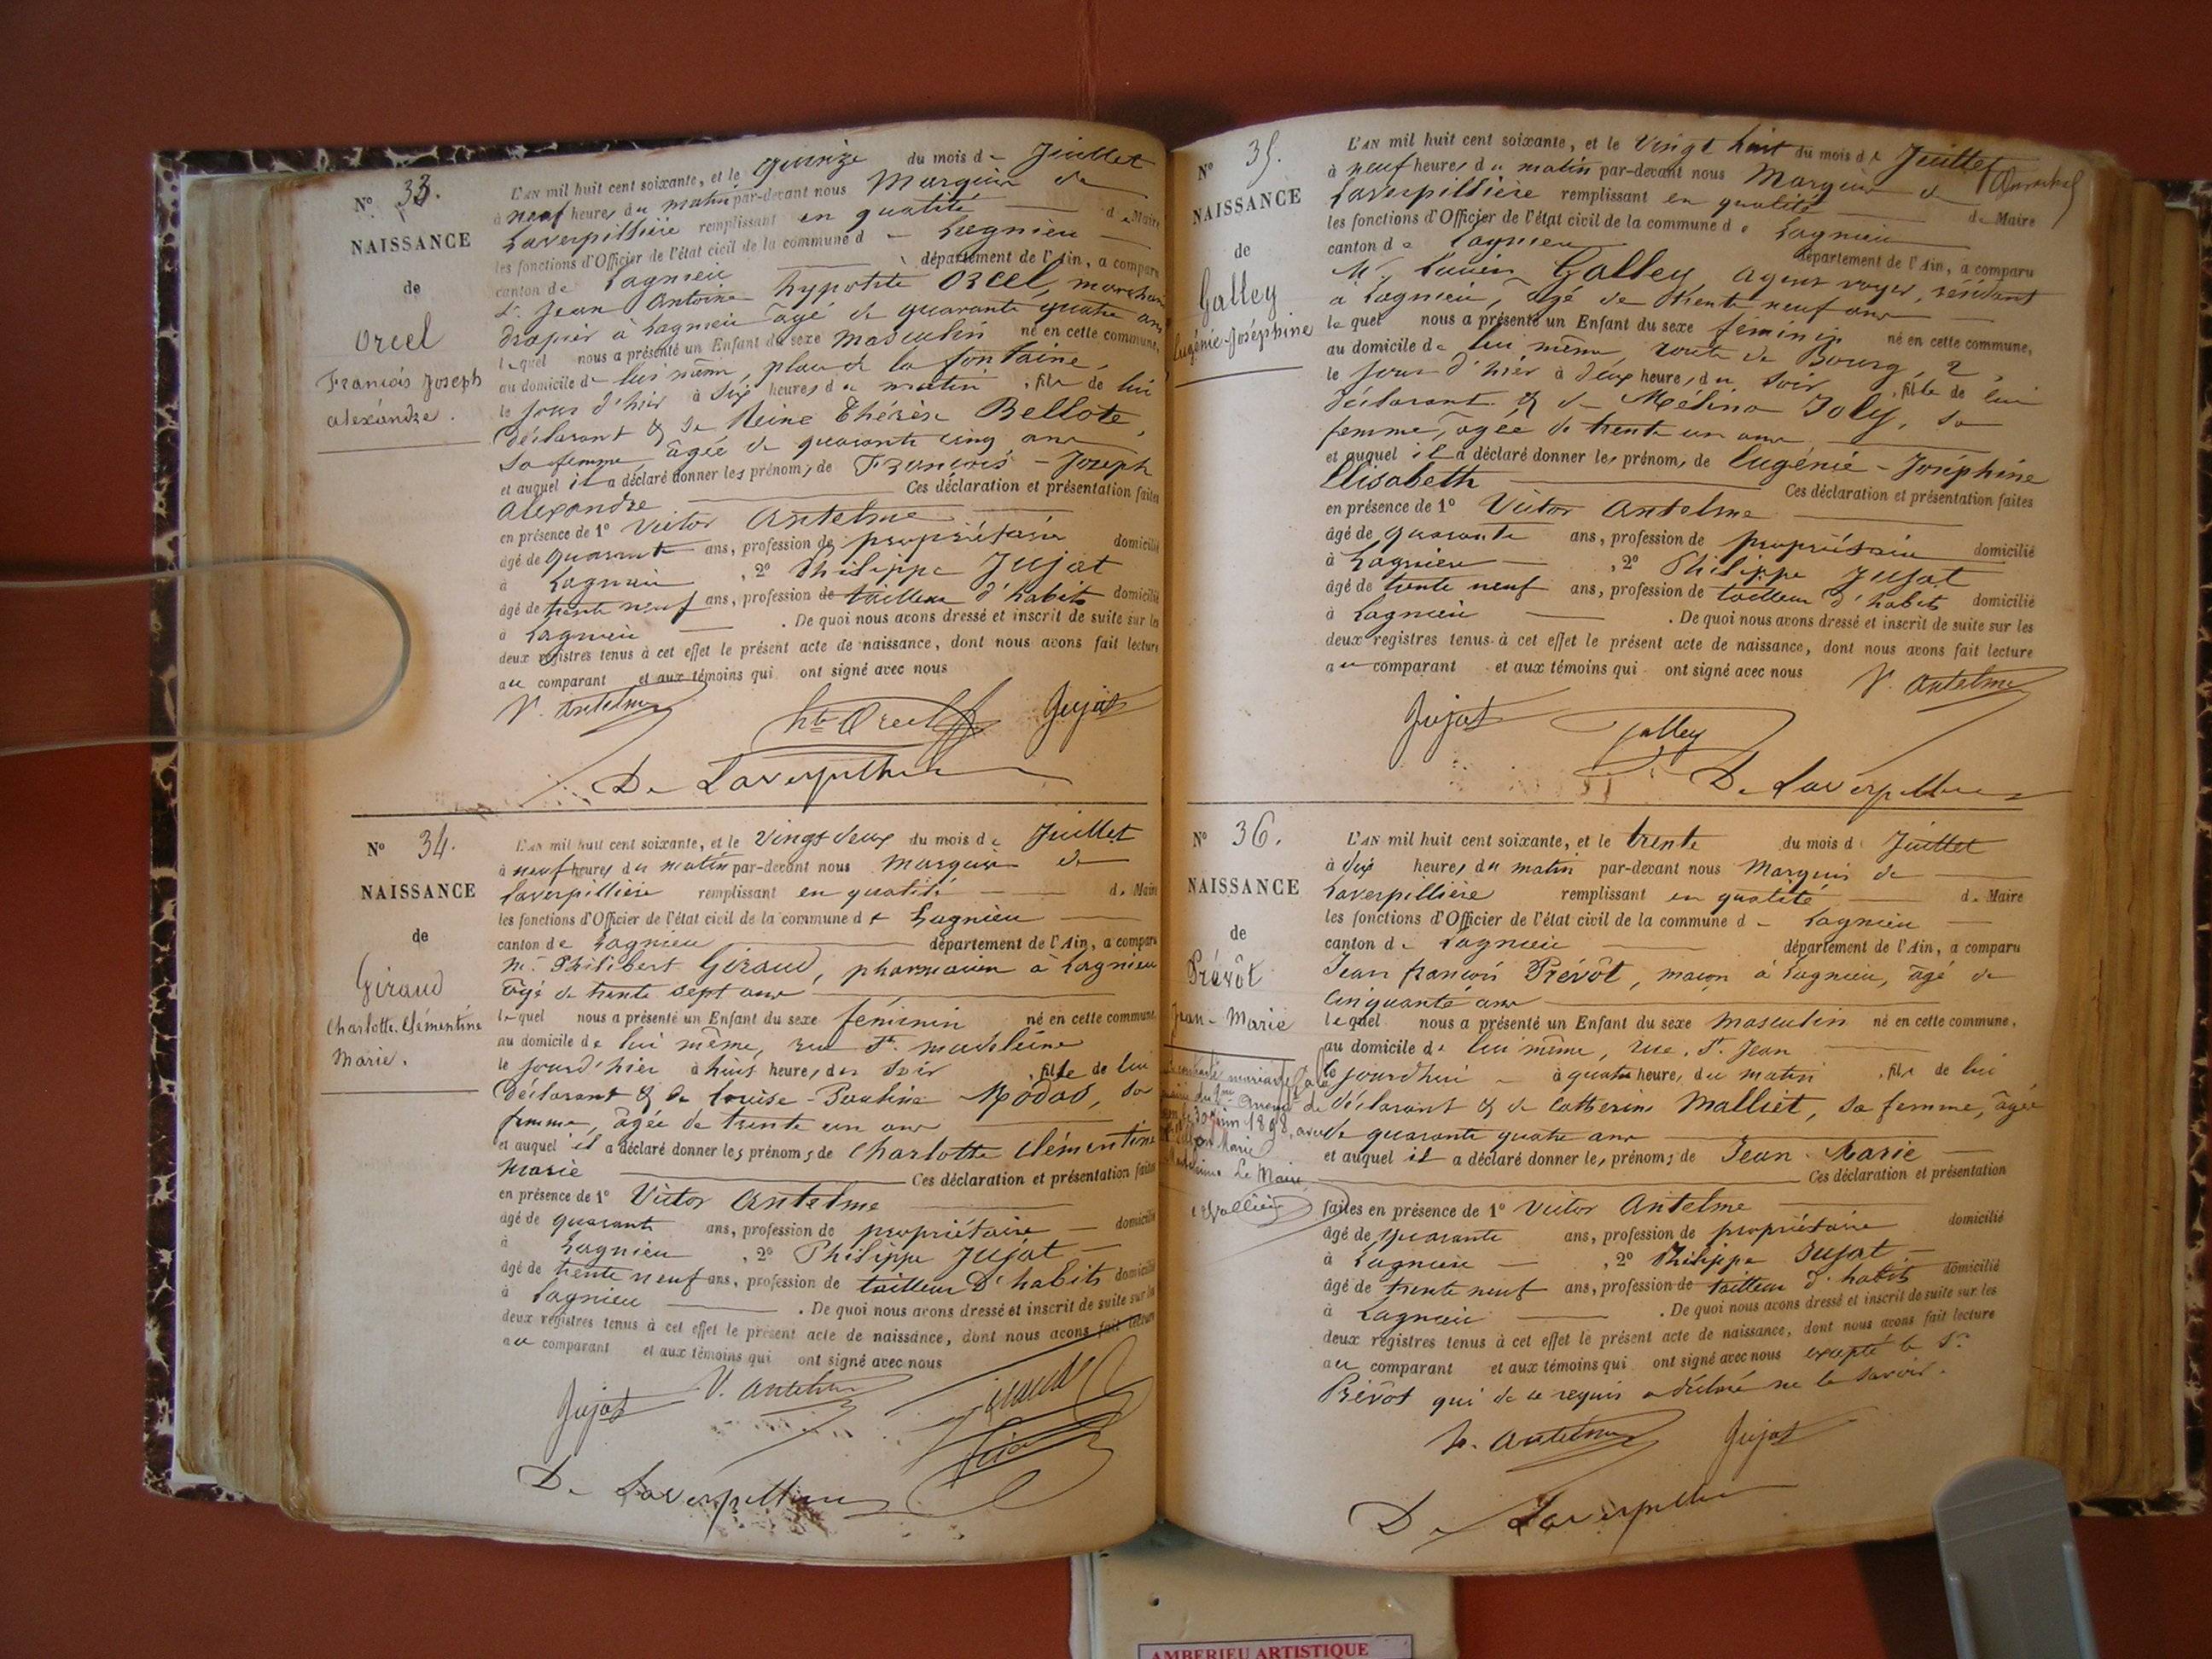 N° 33.
NAISSANCE
de
Orcel
François Joseph
alexandre.
L'AN mil huit cent soixante, et le quinze du mois de Juillet
à neuf heures du matin par-devant nous Marquis de
Laverpillière remplissant en qualité de Maire
les fonctions d'Officier de l'état civil de la commune de Lagnieu
canton de Lagnieu département de l'Ain, a comparu
Sr. Jean Antoine hypolite Orcel, marchand
drapier à Lagnieu âgé de quarante quatre ans
lequel nous a présenté un Enfant du sexe masculin né en cette commune,
au domicile de lui même, place de la fontaine,
le jour d'hier à six heures du matin, fils de lui
déclarant & de Reine Thérèse Bellote,
sa femme, âgée de quarante cinq ans
et auquel il a déclaré donner les prénoms de François - Joseph
Alexandre Ces déclaration et présentation faites
en présence de 1° Victor Antelme
âgé de quarante ans, profession de propriétaire domicilié
à Lagnieu, 2° Philippe Jujat
âgé de trente neuf ans, profession de tailleur d'habits domicilié
à Lagnieu. De quoi nous avons dressé et inscrit de suite sur les
deux registres tenus à cet effet le présent acte de naissance, dont nous avons fait lecture
au comparant et aux témoins qui ont signé avec nous
V. Antelme hte Orcel Jujat
De Laverpillière
N° 34.
NAISSANCE
de
Giraud
Charlotte Clémentine
Marie.
L'AN mil huit cent soixante, et le vingt deux du mois de Juillet
à neuf heures du matin par-devant nous Marquis de
Laverpillière remplissant en qualité de Maire
les fonctions d'Officier de l'état civil de la commune de Lagnieu
canton de Lagnieu département de l'Ain, a comparu
Mr. Philibert Giraud, pharmacien à Lagnieu
âgé de trente sept ans
lequel nous a présenté un Enfant du sexe féminin né en cette commune
au domicile de lui même, rue Ste. madeleine
le jour d'hier à huit heures du soir, fille de lui
déclarant & de Louise - Pauline, sa
femme, âgée de trente un ans
et auquel il a déclaré donner les prénoms de Charlotte Clémentine
Marie Ces déclaration et présentation faites
en présence de 1° Victor Antelme
âgé de quarante ans, profession de propriétaire domicilié
à Lagnieu, 2° Philippe Jujat
âgé de trente neuf ans, profession de tailleur d'habits domicilié
à Lagnieu. De quoi nous avons dressé et inscrit de suite sur les
deux registres tenus à cet effet le présent acte de naissance, dont nous avons fait lecture
au comparant et aux témoins qui ont signé avec nous
Jujat V. Antelme Giraud
De Laverpillière
N° 35.
NAISSANCE
de
Galley
Eugénie-Joséphine
L'AN mil huit cent soixante, et le vingt huit du mois de Juillet
à neuf heures du matin par-devant nous Marquis de
Laverpillière remplissant en qualité de Maire
les fonctions d'Officier de l'état civil de la commune de Lagnieu
canton de Lagnieu département de l'Ain, a comparu
Mr. Lucien Galley agent voyer, résidant
à Lagnieu, âgé de trente neuf ans
lequel nous a présenté un Enfant du sexe féminin né en cette commune,
au domicile de lui même, route de Bourg, 2,
le jour d'hier à deux heures du soir, fille de lui
déclarant & de Mélina Joly, sa
femme, âgée de trente un ans
et auquel il a déclaré donner les prénoms de Eugénie - Joséphine
Elisabeth Ces déclaration et présentation faites
en présence de 1° Victor Antelme
âgé de quarante ans, profession de propriétaire domicilié
à Lagnieu, 2° Philippe Jujat
âgé de trente neuf ans, profession de tailleur d'habits domicilié
à Lagnieu. De quoi nous avons dressé et inscrit de suite sur les
deux registres tenus à cet effet le présent acte de naissance, dont nous avons fait lecture
au comparant et aux témoins qui ont signé avec nous V. Antelme
Jujat Galley
De Laverpillière
N° 36.
NAISSANCE
de
Prévôt
Jean - Marie
L'AN mil huit cent soixante, et le trente du mois de Juillet
à dix heures du matin par-devant nous Marquis de
Laverpillière remplissant en qualité de Maire
les fonctions d'Officier de l'état civil de la commune de Lagnieu
canton de Lagnieu département de l'Ain, a comparu
Jean françois Prévôt, maçon à Lagnieu, âgé de
Cinquante ans
lequel nous a présenté un Enfant du sexe masculin né en cette commune,
au domicile de lui même, rue St. Jean
ce jourd'hui à quatre heures du matin, fils de lui
déclarant & de Catherine Malliet, sa femme, âgée
de quarante quatre ans
et auquel il a déclaré donner les prénoms de Jean - Marie
Ces déclaration et présentation
faites en présence de 1° Victor Antelme
âgé de quarante ans, profession de propriétaire domicilié
à Lagnieu, 2° Philippe Jujat
âgé de trente neuf ans, profession de tailleur d'habits domicilié
à Lagnieu. De quoi nous avons dressé et inscrit de suite sur les
deux registres tenus à cet effet le présent acte de naissance, dont nous avons fait lecture
au comparant et aux témoins qui ont signé avec nous excepté le Sr.
Prévôt qui de ce requis a déclaré ne le savoir.
V. Antelme Jujat
De Laverpillière
mariage à la
1898, avec
Marie
Le Maire
AMBERIEU ARTISTIQUE